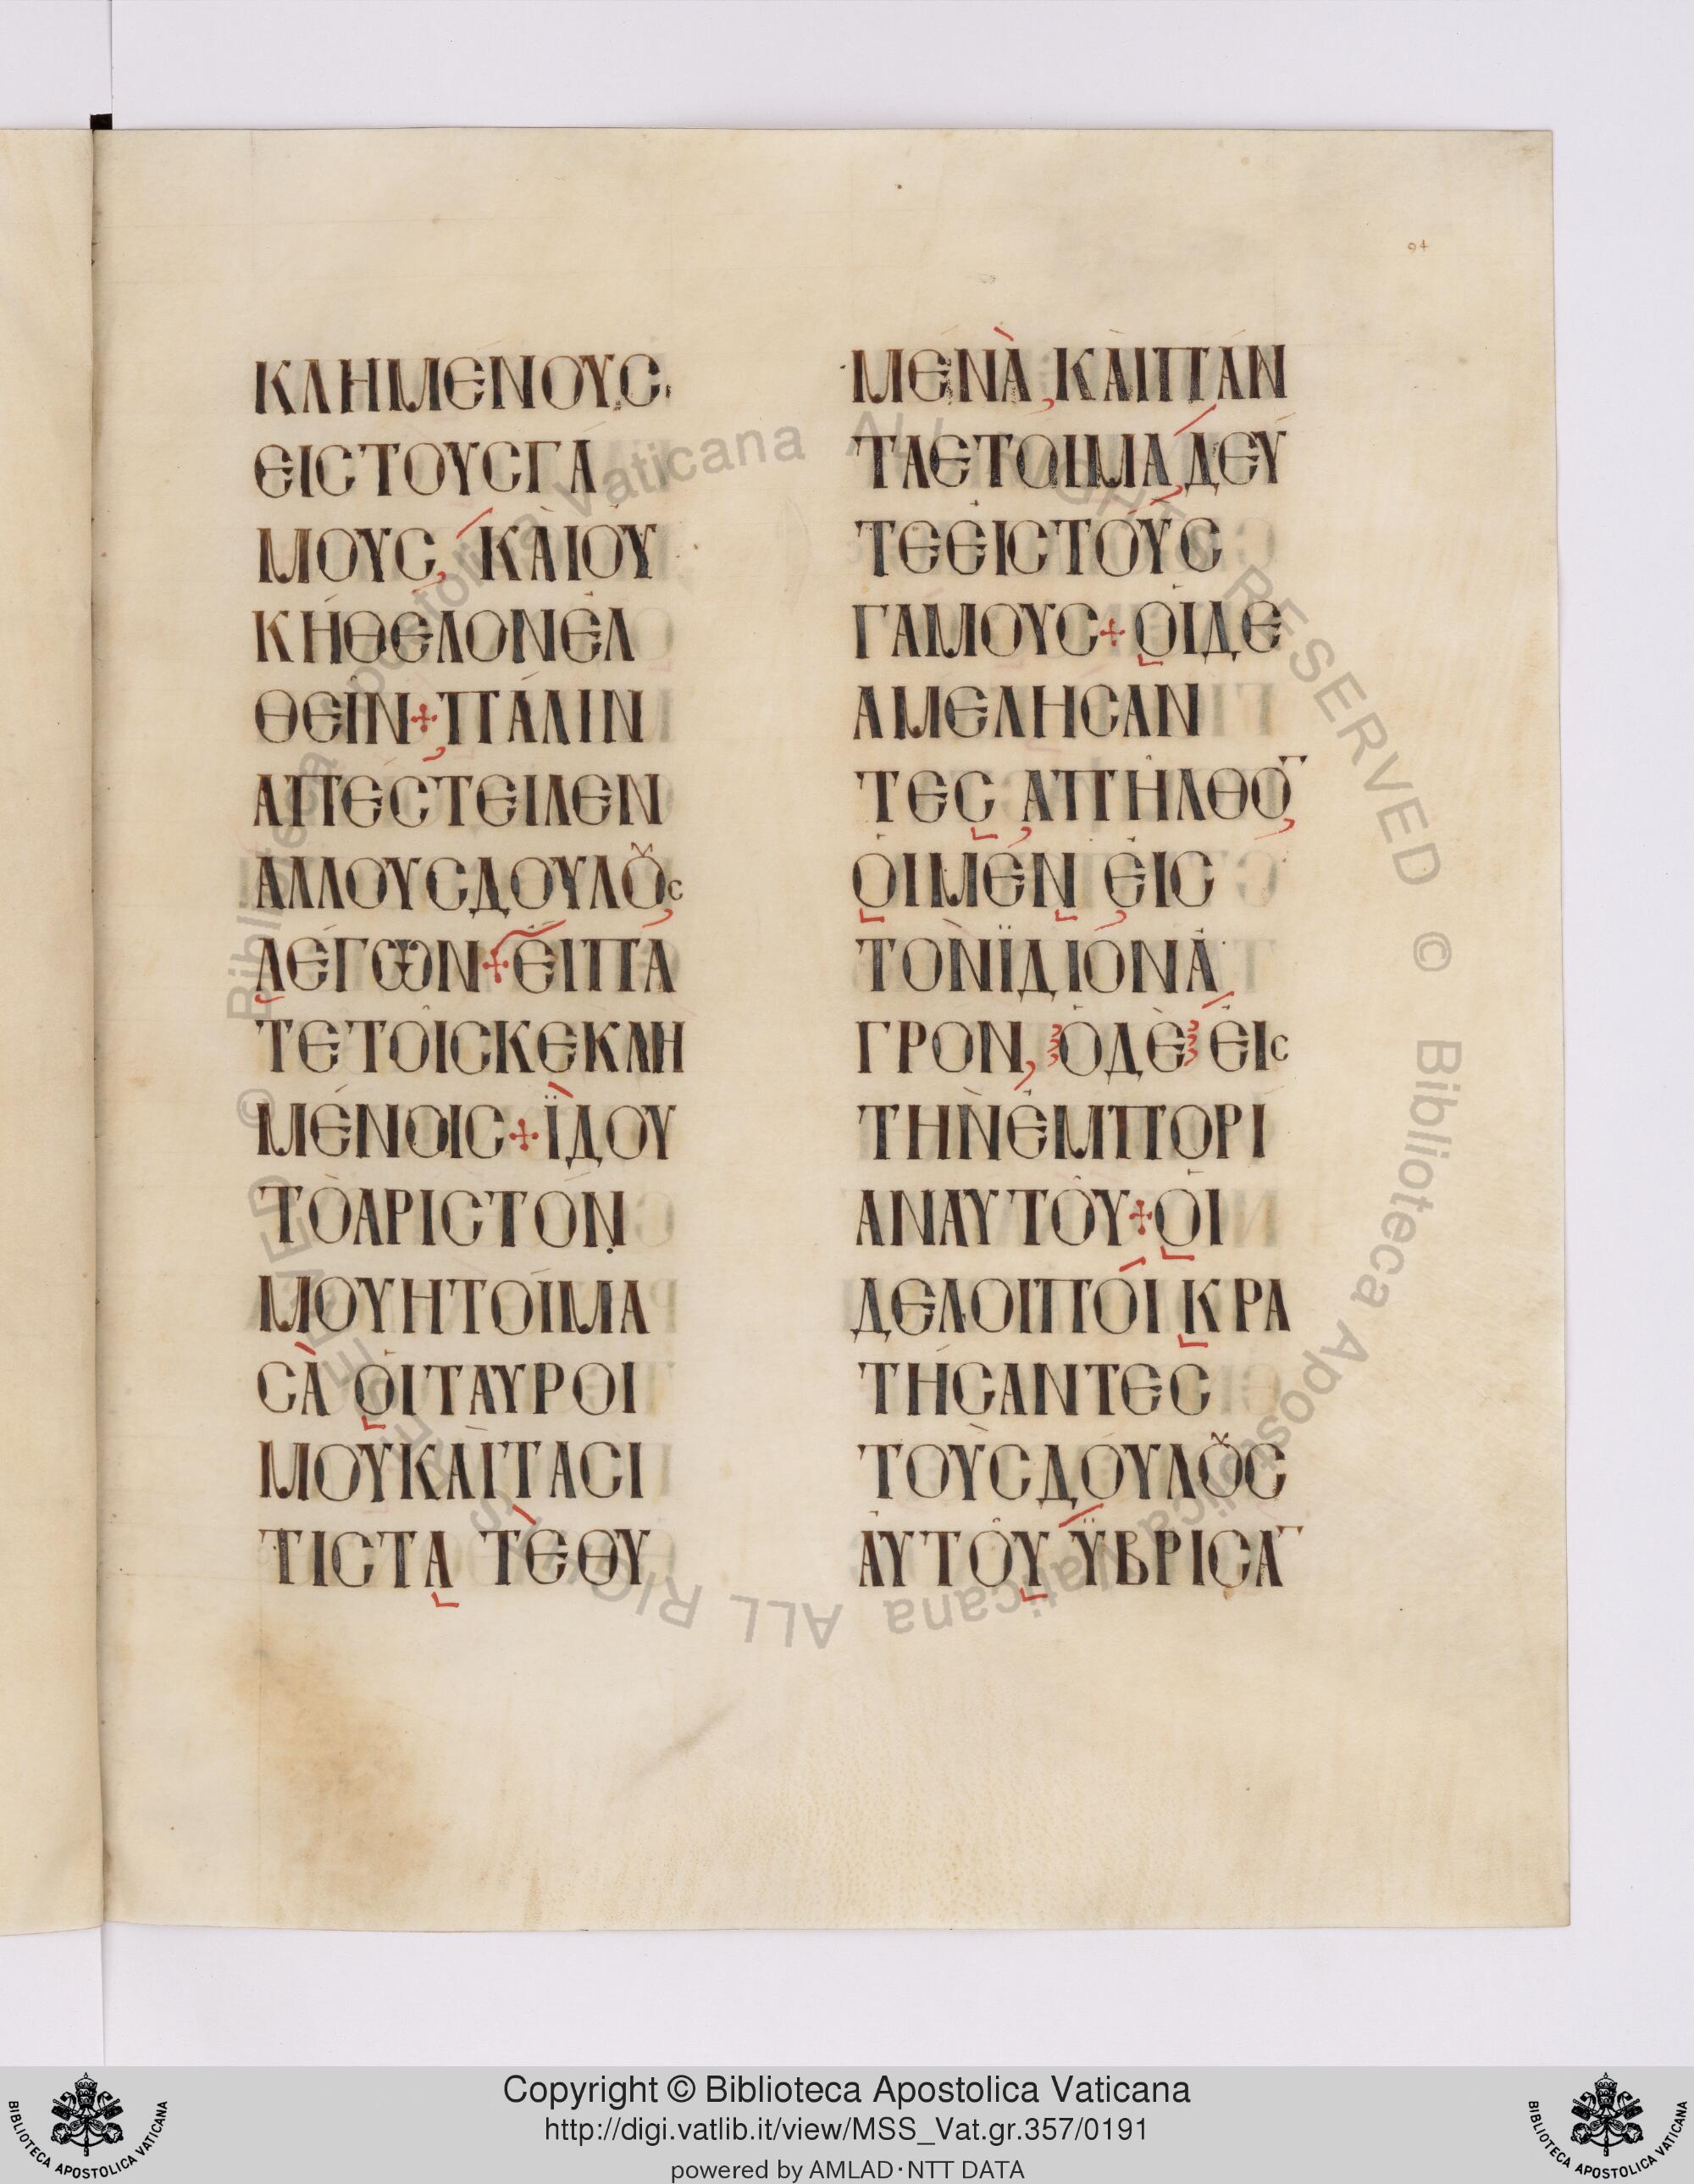 94
ΚΛΗΜΕΝΟΥϹ,
ΕΙϹΤΟΥϹΓΑ
ΜΟΥϹ, ΚΑῚΟΥ
ΚΉΘΕΛΟΝΕΛ
ΘΕΙ͂Ν+ΠΆΛΙΝ
ΑΠΈϹΤΕΙΛΕΝ
ΆΛΛΟΥϹΔΟΥΛȢϹ
ΛΈΓΩΝ+ΕΊΠΑ
ΤΕΤΟΙ͂ϹΚΕΚΛΗ
ΜΈΝΟΙϹ+ΪΔΟΥ
ΤῸΆΡΙϹΤΌΝ
ΜΟΥΗΤΟΊΜΑ
ϹᾺ ΟἹΤΑΥΡΟΙ
ΜΟΥΚΑῚΤΑϹΙ
ΤΙϹΤᾺ ΤΕΘΥ
ΜΈΝᾺ, ΚΑῚΠΆΝ
ΤΑΕΤΟΙΜΑ, ΔΕΥ
ΤΕΕΙϹΤΟῪϹ
ΓΆΜΟΥϹ+ΟἹΔΕ
ΑΜΕΛΗϹΑΝ
ΤΕϹ ΑΠΗ͂ΛΘΟ̅
ΟἹΜῈΝ ΕΙϹ
ΤῸΝΪΔΙΟΝΑ
ΓΡΟΝ, ὉΔῈ ΕΙϹ
ΤῊΝΕΜΠΟΡΙ
ΑΝΑΥΤΟΥ͂+ΟἹ
ΔΕΛΟΙΠΟῚ ΚΡΑ
ΤΉϹΑΝΤΕϹ
ΤΟῪϹΔΟΎΛȢϹ
ΑΥΤΟΥ͂ ΫΒΡΙϹΑ̅
© Biblioteca Apostolica Vaticana ALL RIGHTS RESERVED © Biblioteca Apostolica Vaticana ALL RIGHTS RESERVED
Copyright © Biblioteca Apostolica Vaticana
http://digi.vatlib.it/view/MSS_Vat.gr.357/0191
powered by AMLAD·NTT DATA
BIBLIOTECA APOSTOLICA VATICANA
BIBLIOTECA APOSTOLICA VATICANA